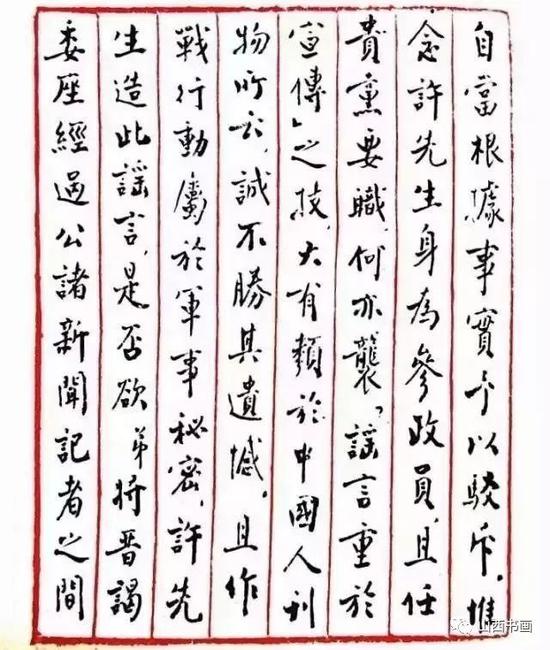 自當根據事實予以駁斥，惟
念許先生身為參政員，且任
貴黨要職，何亦襲「謠言重於
宣傳」之技，大有類於中國人刊
物所云，誠不勝其遺憾。且作
戰行動屬於軍事秘密，許先
生造此謠言，是否欲弟將晉謁
委座經過公諸新聞記者之間
山西书画